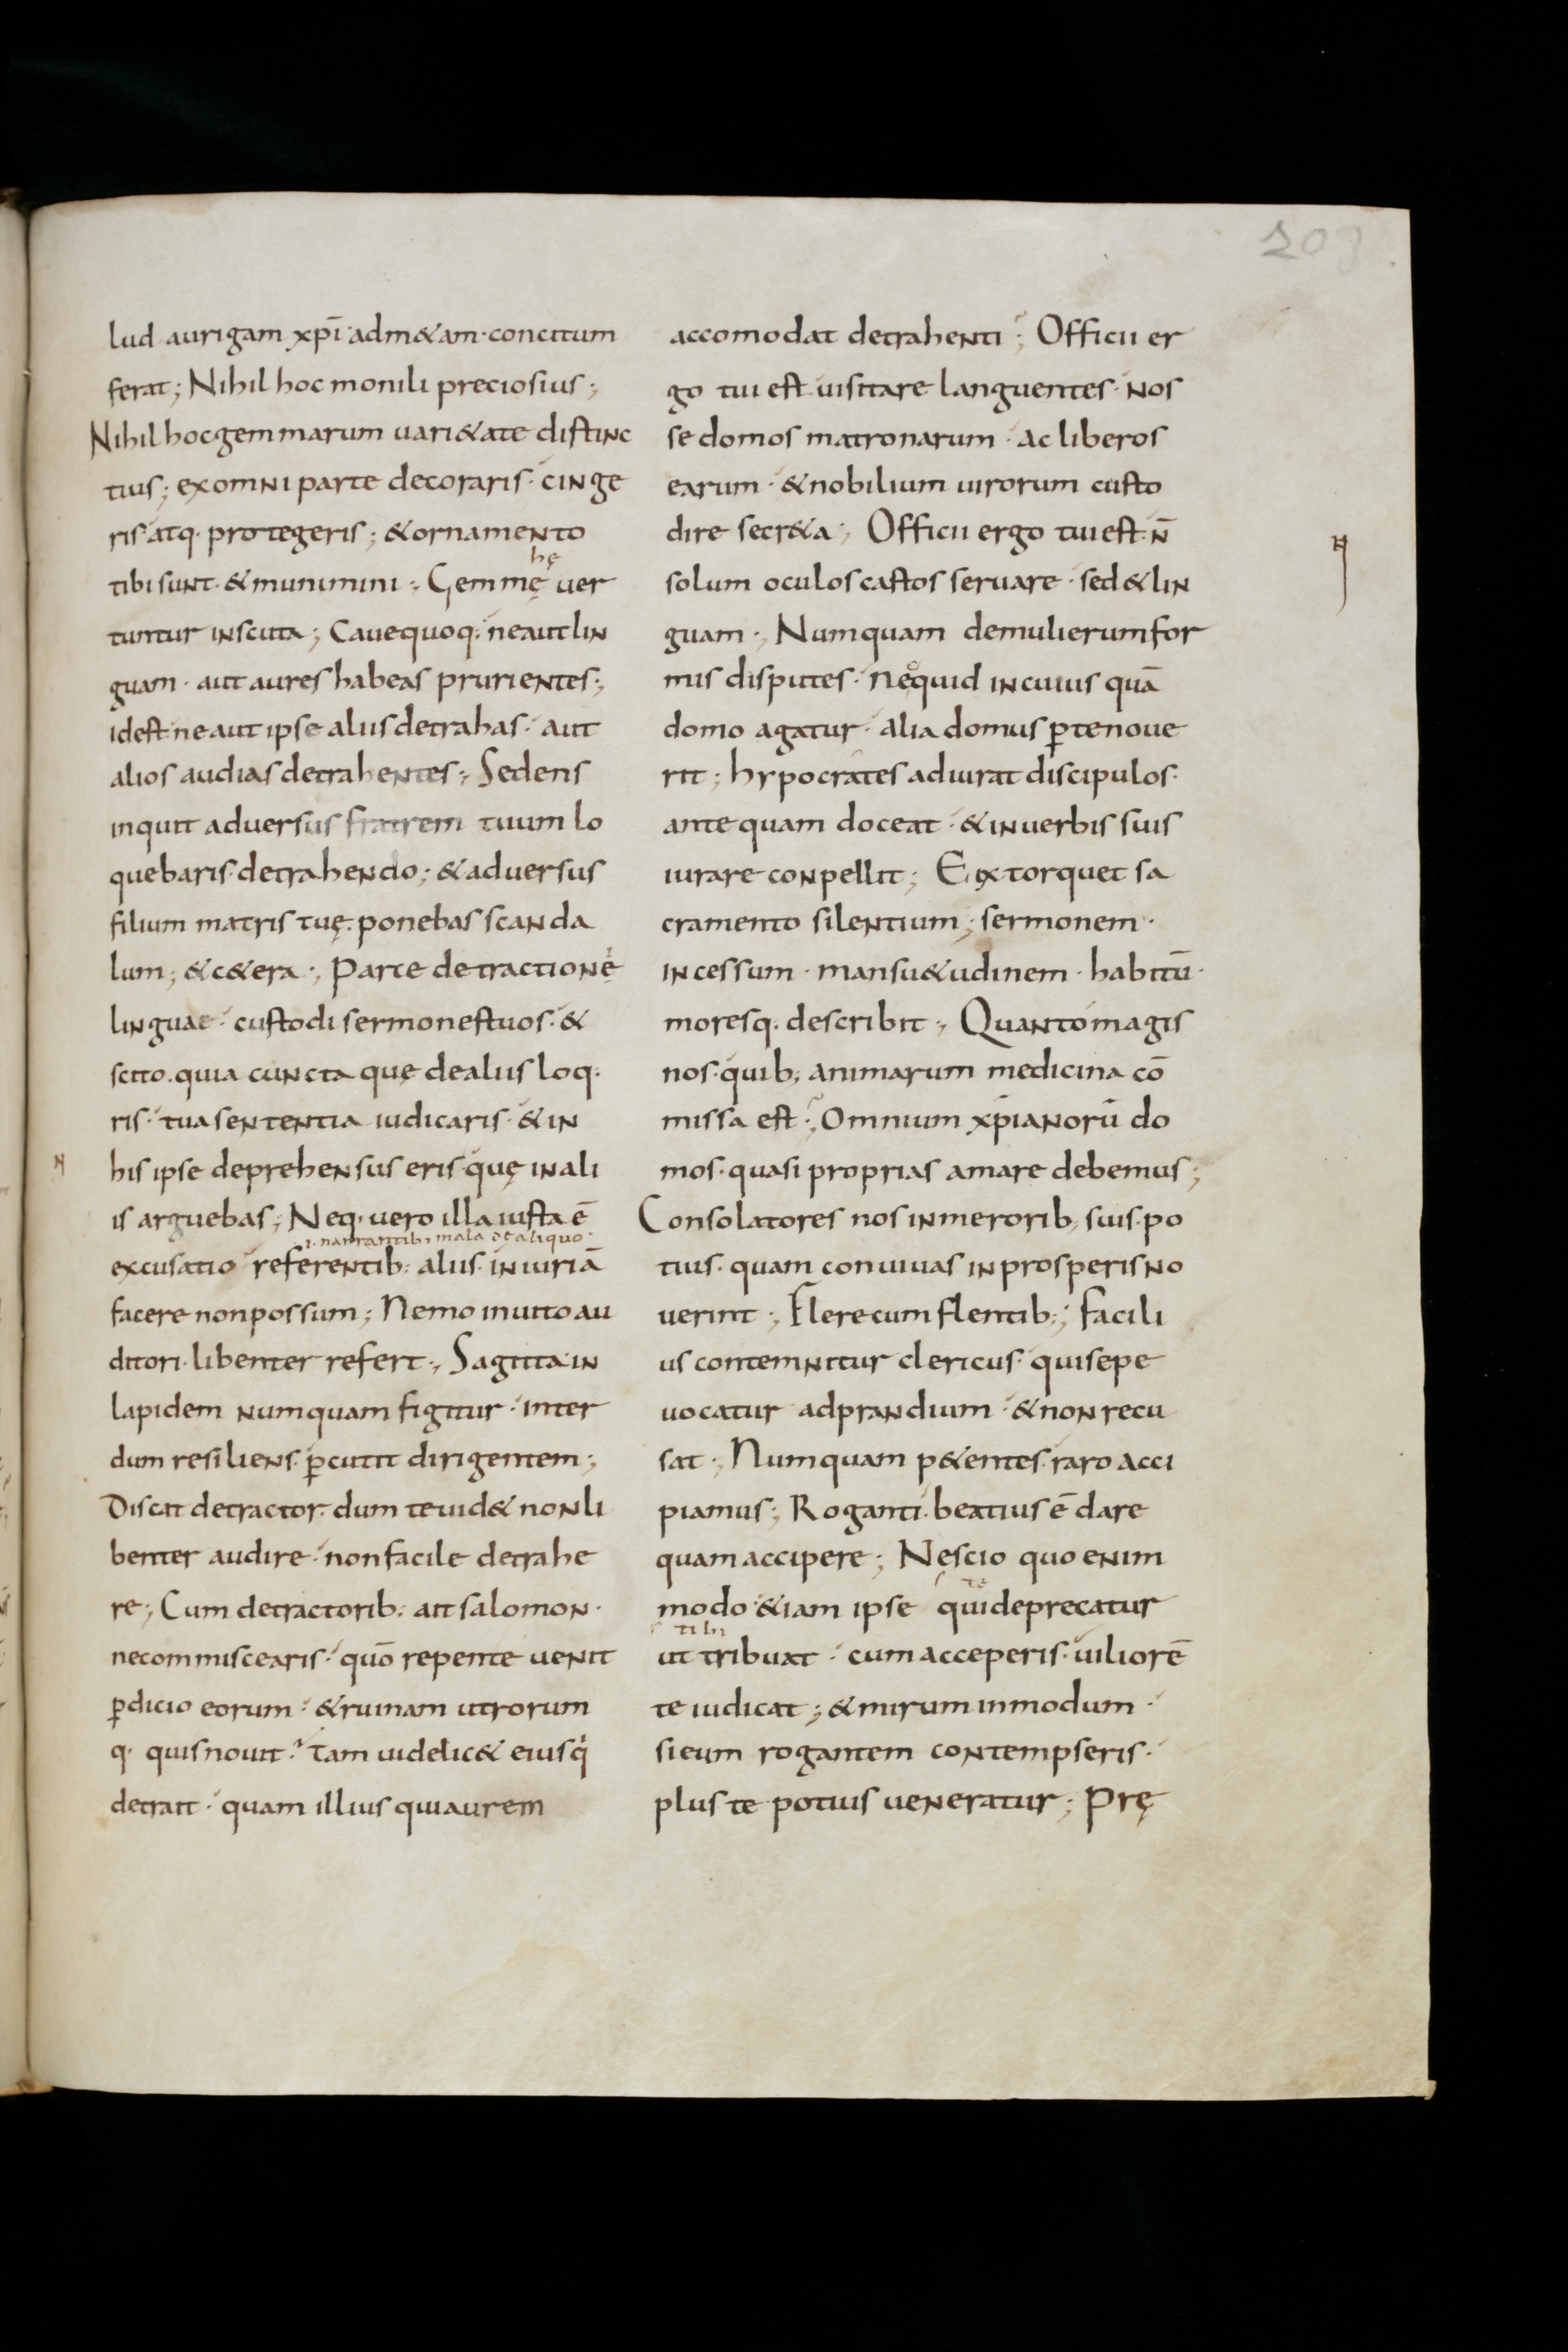 203
lud aurigam xpī adm&am· concitum
ferat; Nihil hoc monili preciosius;
Nihil hoc gemmarum uari&ate distinc
tius; ex omni parte decoraris· cinge
ris atq· protegeris; & ornamento
hę
tibi sunt· & munimini; Gemmę uer
tuntur in scuta; Caue quoq; ne aut lin
guam· aut aures habeas prurientes;
id est ne aut ipse aliis detrahas· aut
alios audias detrahentes; Sedens
inquit aduersus fratrem tuum lo
quebaris detrahendo; & aduersus
filium matris tuę ponebas scanda
lum; & c&era; Parce detractionę
linguae· custodi sermones tuos· &
scito· quia cuncta quę de aliis loq·
ris· tua sententia iudicaris· & in
N
his ipse deprehensus eris quę in ali
is arguebas; Neq· uero illa iusta ē
.i. narrantib; mala de aliquo
excusatio referentib: aliis iniuriā
facere non possum; Nemo inuito au
ditori· libenter refert; Sagitta in
lapidem numquam figitur· inter
dum resiliens p̄cutit dirigentem;
Discat detractor· dum te uid& non li
benter audire· non facile detrahe
re; Cum detractorib: ait salomon·
ne commiscearis· quō repente uenit
p̄dicio eorum· & ruinam utrorum
q· quis nouit? tam uidelic& eius q̇
detrait· quam illius qui aurem
accomodat detrahenti; Officii er
go tui est uisitare languentes· nos
se domos matronarum· ac liberos
earum· & nobilium uirorum custo
dire secr&a; Officii ergo tui est n̄
solum oculos castos seruare· sed & lin
guam; Numquam de mulierum for
mis disputes· nec quid in cuius quā
domo agatur· alia domus p̄ te noue
rit; hypocrates adiurat discipulos·
ante quam doceat· & in uerbis suis
iurare conpellit; Extorquet sa
cramento silentium; sermonem·
incessum· mansu&udinem· habitū·
moresq· describit; Quanto magis
nos· quib; animarum medicina cō
missa est; Omnium xp̄ianorū do
mos· quasi proprias amare debemus;
Consolatores nos in merorib; suis po
tius· quam conuiuas in prosperis no
uerint; Flere cum flentib:; facili
us contemnitur clericus· qui sepe
uocatur ad prandium· & non recu
sat; Numquam p&entes raro acci
piamus; Roganti beatius ē dare
quam accipere; Nescio quo enim
te
modo &iam ipse qui deprecatur
tibi
ut tribuat· cum acceperis· uiliorē
te iudicat; & mirum in modum·
si eum rogantem contempseris·
plus te potius ueneratur; Prę